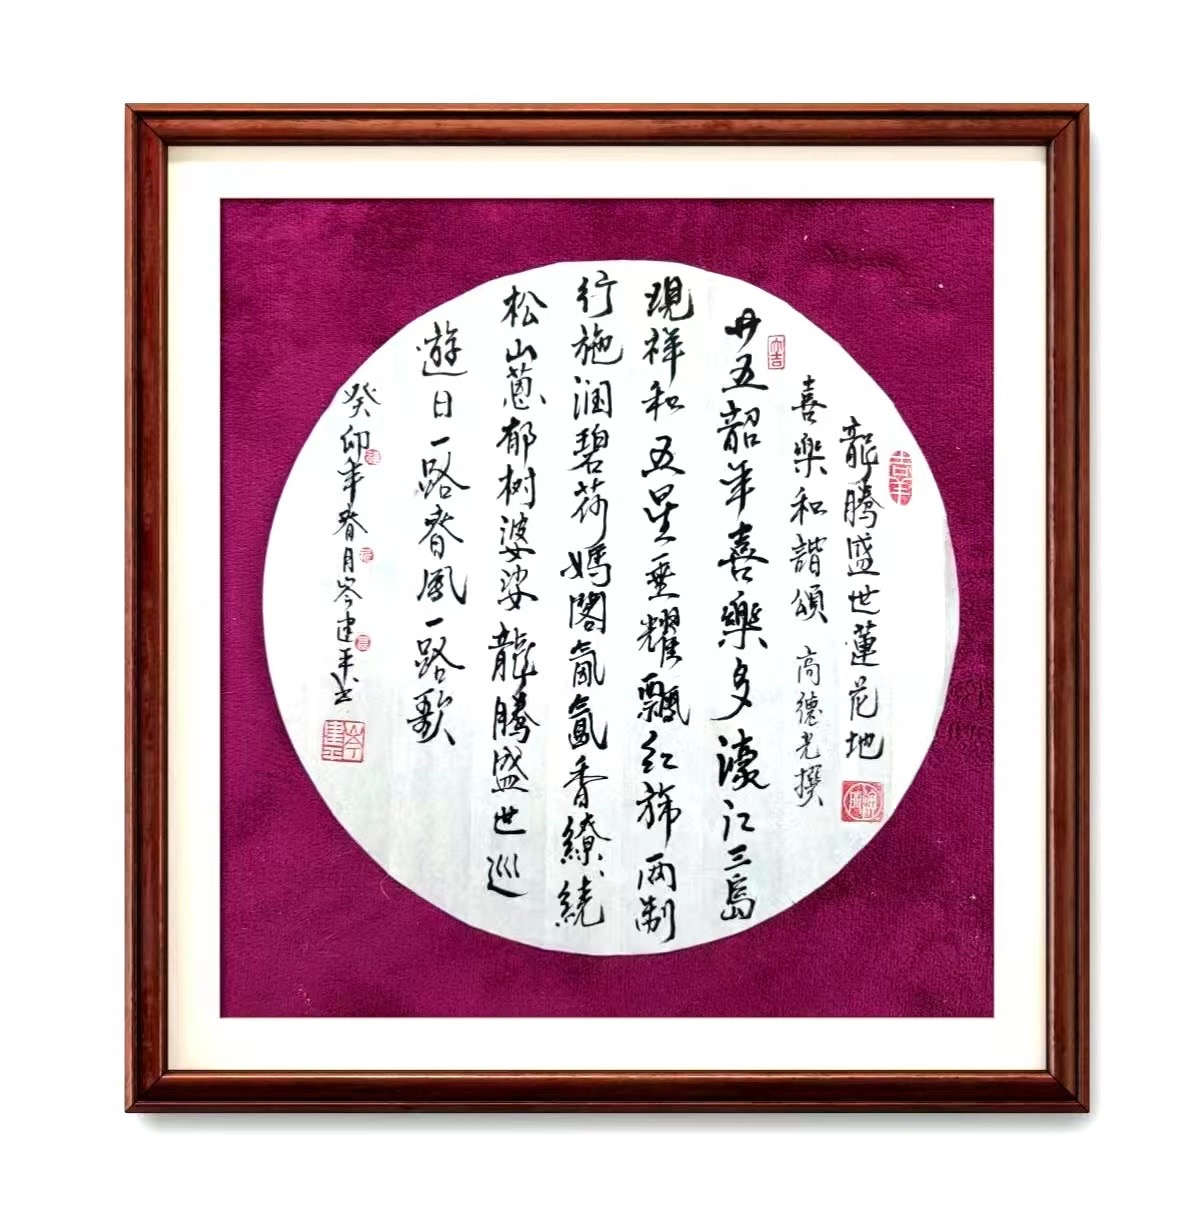 龍騰盛世蓮花地
喜樂和諧頌 高德光撰
廿五韶年喜樂多濠江三島
現祥和五星垂耀飄红旆两制
行施润碧荷媽閣氤氲香繚繞
松山蔥郁树婆娑龍騰盛世巡
遊日一路春風一路歌
癸卯年春月岑建平书
大吉